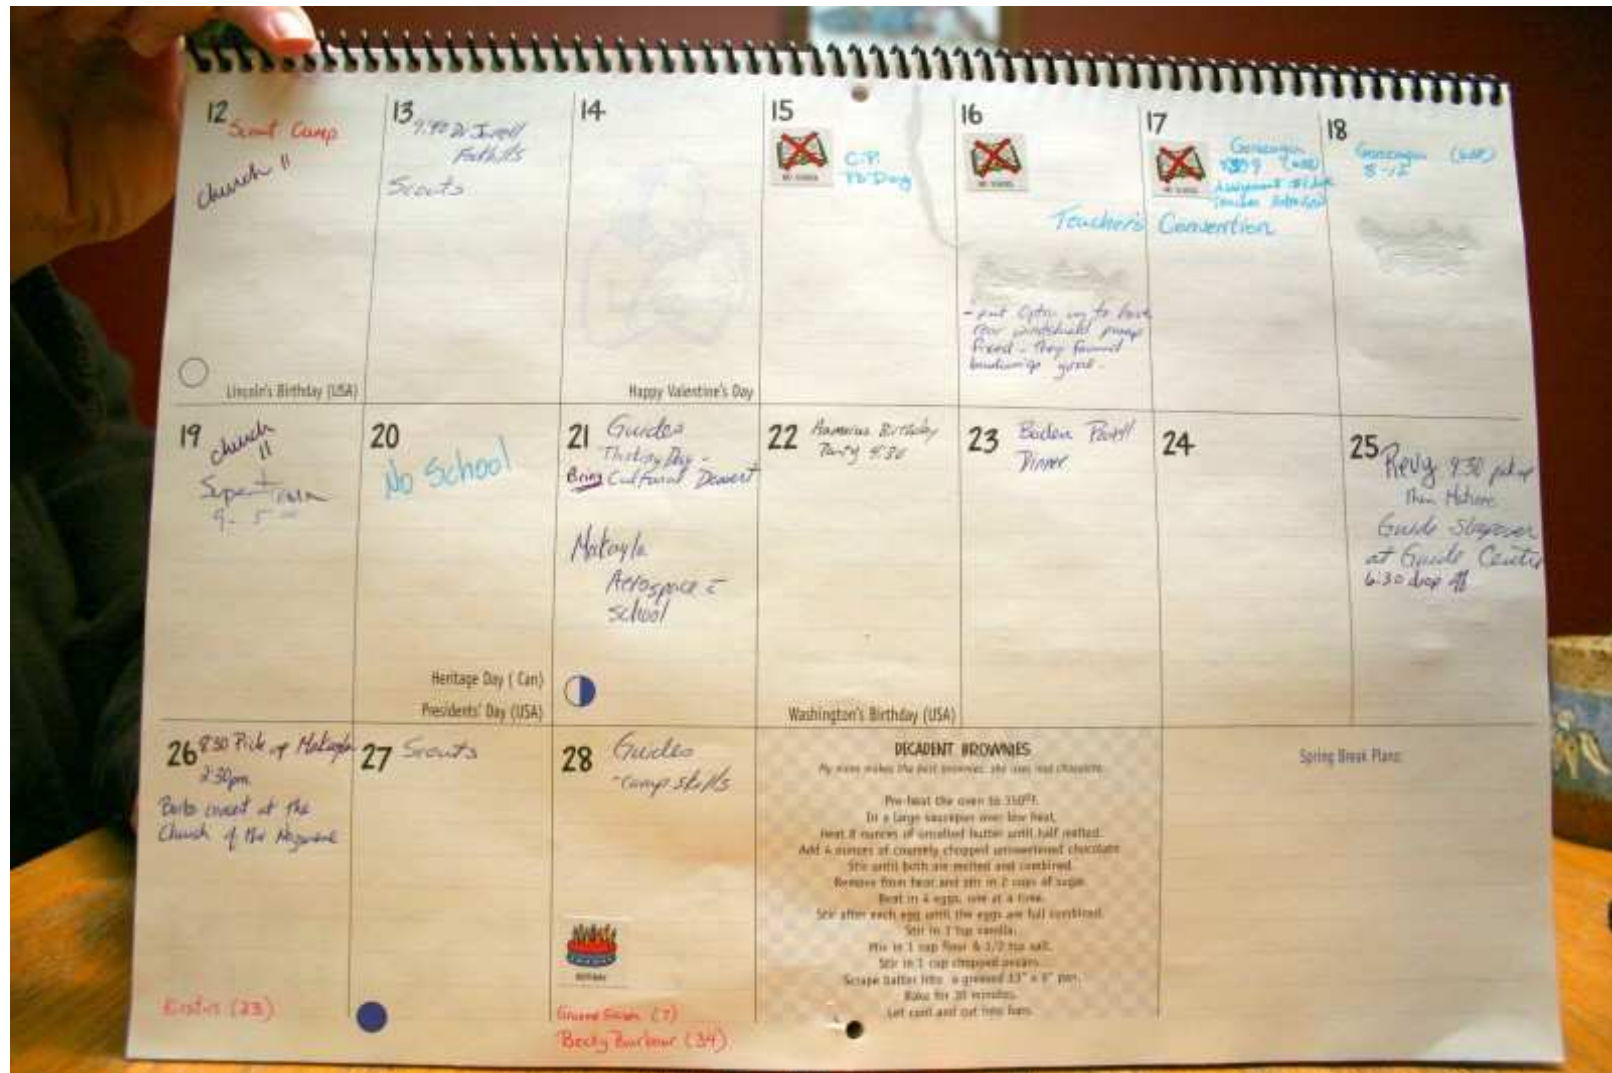 12
Scout Camp
church 11
Lincoln's Birthday (USA)
13
Foothills
Scouts
14
Happy Valentine's Day
15
NO SCHOOL
C.P.
PD Day
16
NO SCHOOL
Teacher's Convention
- put
rear windshield pump
fixed - they found
17
NO SCHOOL
Teacher
18
8-12
19
church
11
20
No School
Heritage Day ( Can)
Presidents' Day (USA)
21
Guides
Thinking Day -
Bring Cultural Dessert
Makayla
Aerospace
school
22
Birthday
Party 4:30
Washington's Birthday (USA)
23
Baden Powell
Dinner
24
25
9:30
then
Guide Sleepover
at Guide Centre
6:30 drop off
26
8:30 Pick up Makayla
2:30pm
meet at the
Church of the
Kirstin (23)
27
Scouts
28
Guides
- camp skills
BIRTHDAY
(7)
Becky Barbour (34)
DECADENT BROWNIES
My mom makes the best brownies, she uses real chocolate.
Pre-heat the oven to 350°F.
In a large saucepan over low heat,
heat 8 ounces of unsalted butter until half melted.
Add 4 ounces of coarsely chopped unsweetened chocolate
Stir until both are melted and combined.
Remove from heat and stir in 2 cups of sugar.
Beat in 4 eggs, one at a time.
Stir after each egg until the eggs are full combined.
Stir in 1 tsp vanilla.
Mix in 1 cup flour & 1/2 tsp salt.
Stir in 1 cup chopped pecans.
Scrape batter into a greased 13" x 9" pan.
Bake for 30 minutes.
Let cool and cut into bars.
Spring Break Plans: